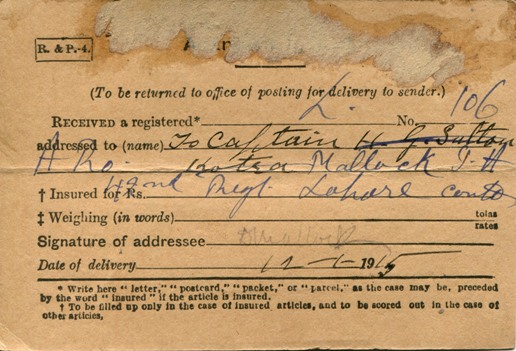 R. & P.-4.
(To be returned to office of posting for delivery to sender.)
RECEIVED a registered* L. No. 106
addressed to (name) To Captain H. G. Sutton
Kotra Mallock I. A
† Insured for Rs. Regt. Lahore
‡ Weighing (in words) tolas
rates
Signature of addressee
Date of delivery 12-1-1915
* Write here "letter," "postcard," "packet," or "parcel," as the case may be, preceded
by the word "insured" if the article is insured.
† To be filled up only in the case of insured articles, and to be scored out in the case of
other articles.